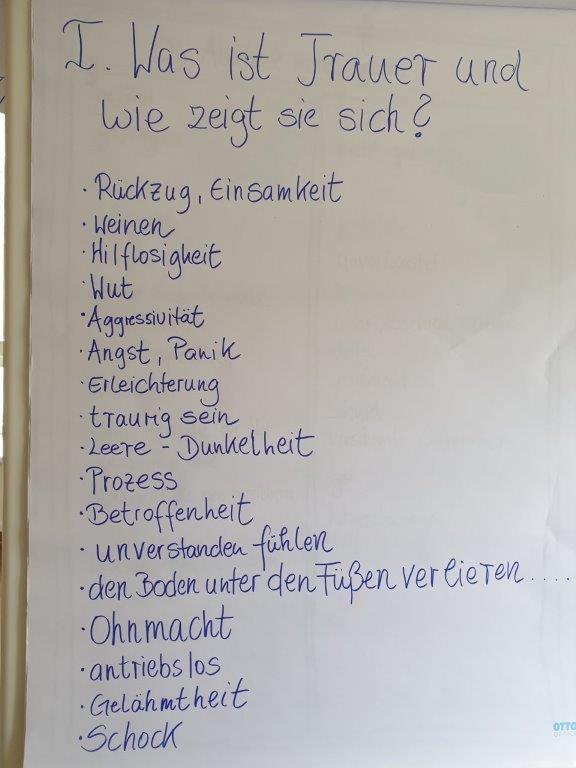 I. Was ist Trauer und
wie zeigt sie sich?
· Rückzug, Einsamkeit
· Weinen
· Hilflosigkeit
· Wut
· Aggressivität
· Angst, Panik
· Erleichterung
· traurig sein
· Leere - Dunkelheit
· Prozess
· Betroffenheit
· unverstanden fühlen
· den Boden unter den Füßen verlieren....
· Ohnmacht
· antriebslos
· Gelähmtheit
· Schock
OTTO